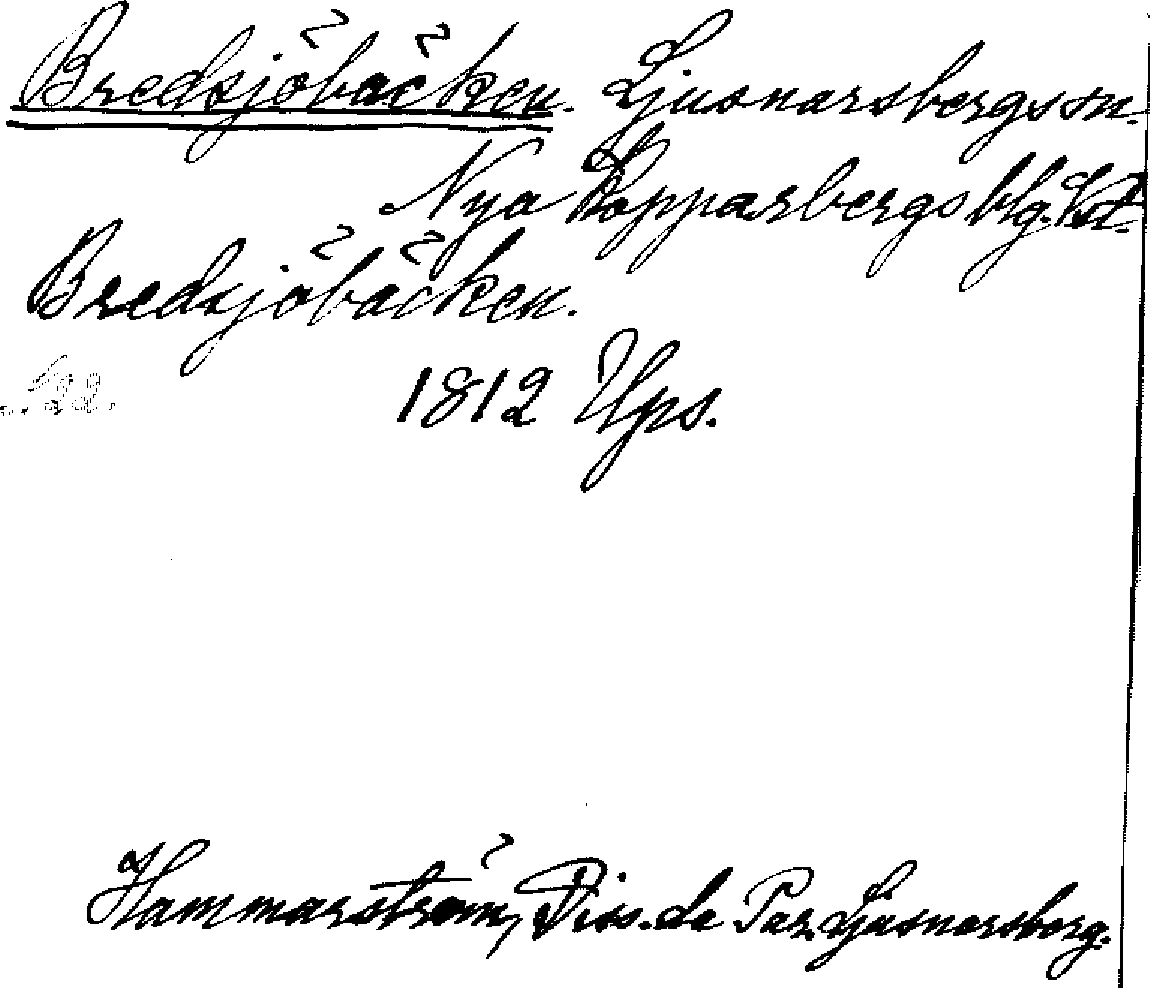 Bredsjöbäcken. Ljusnarsbergs sn.
Nya Kopparbergs blg.
Bredsjöbäcken.
1812 Ups.
Hammarström, Diss. de Par. Ljusnarsberg.